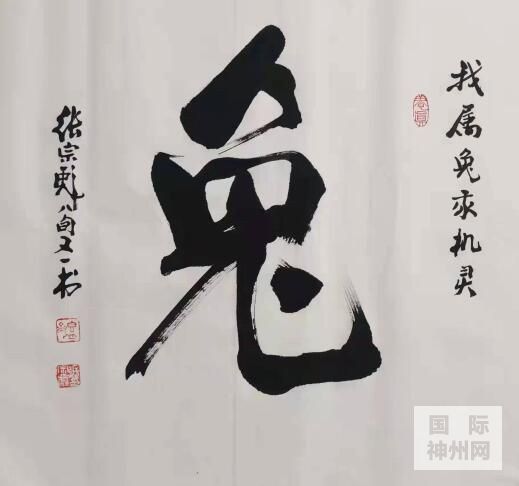 找属兔求机灵
兔
张宗彪八旬又一书
国际
神州网